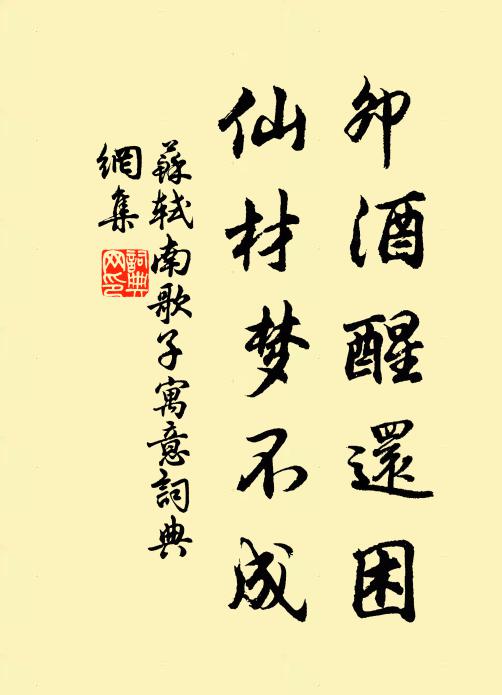 卯酒醒還困
仙材梦不成
蘇軾南歌子寓意詞典
網集
詞典
网印